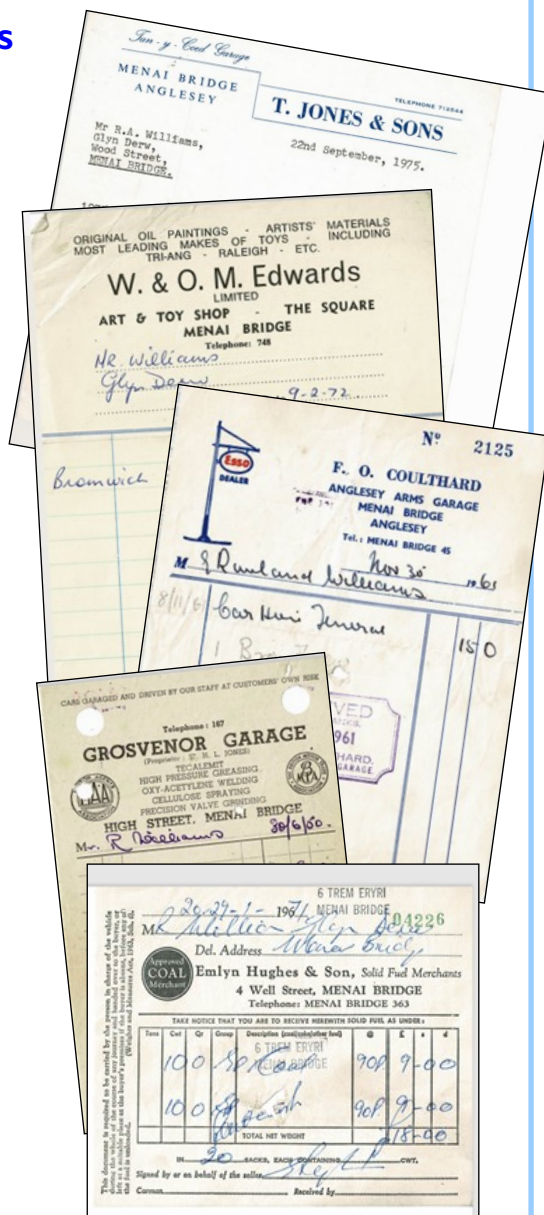 s
Tan - y - Coed Garage
MENAI BRIDGE
ANGLESEY
TELEPHONE 712544
T. JONES & SONS
22nd September, 1975.
Mr R.A. Williams,
Glyn Derw,
Wood Street,
MENAI BRIDGE.
ORIGINAL OIL PAINTINGS - ARTISTS' MATERIALS
MOST LEADING MAKES OF TOYS - INCLUDING
TRI-ANG - RALEIGH - ETC.
W. & O. M. Edwards
LIMITED
ART & TOY SHOP - THE SQUARE
MENAI BRIDGE
Telephone: 748
Mr. Williams
Glyn Derw
9-2-72
Bromwich
Nº 2125
Esso
DEALER
F. O. COULTHARD
ANGLESEY ARMS GARAGE
MENAI BRIDGE
ANGLESEY
Tel.: MENAI BRIDGE 45
Nov 30 1961
M Rowland Williams
8/11/61 Car Hire Funeral 15 0
1
VED
ANKS.
1961
HARD.
GARAGE.
CARS GARAGED AND DRIVEN BY OUR STAFF AT CUSTOMERS' OWN RISK
Telephone: 167
GROSVENOR GARAGE
(Proprietor: H. L. JONES)
TECALEMIT
HIGH PRESSURE GREASING
OXY-ACETYLENE WELDING
CELLULOSE SPRAYING
PRECISION VALVE GRINDING
HIGH STREET, MENAI BRIDGE
Mr. R Williams 30/6/50.
6 TREM ERYRI
MENAI BRIDGE
20-29-1- 1971
04226
M R Glyn Derw
Del. Address Menai Bridge
Approved
COAL
Merchant
Emlyn Hughes & Son, Solid Fuel Merchants
4 Well Street, MENAI BRIDGE
Telephone: MENAI BRIDGE 363
TAKE NOTICE THAT YOU ARE TO RECEIVE HEREWITH SOLID FUEL AS UNDER:
Tons Cwt Qr Group Description (coal/coke/other fuel) @ £ s d
6 TREM ERYRI
MENAI BRIDGE
10 0 Coal 90p 9-00
10 0 90p 9-00
TOTAL NET WEIGHT 18-00
IN 20 SACKS, EACH CONTAINING CWT.
Signed by or on behalf of the seller
Carman Received by
This document is required to be carried by the person in charge of the vehicle
during the whole of the course of any journey and handed over to the buyer, or
left at a suitable place at the buyer's premises if the buyer is absent, before any of
the fuel is unloaded. (Weights and Measures Act, 1963, Sch. 6).